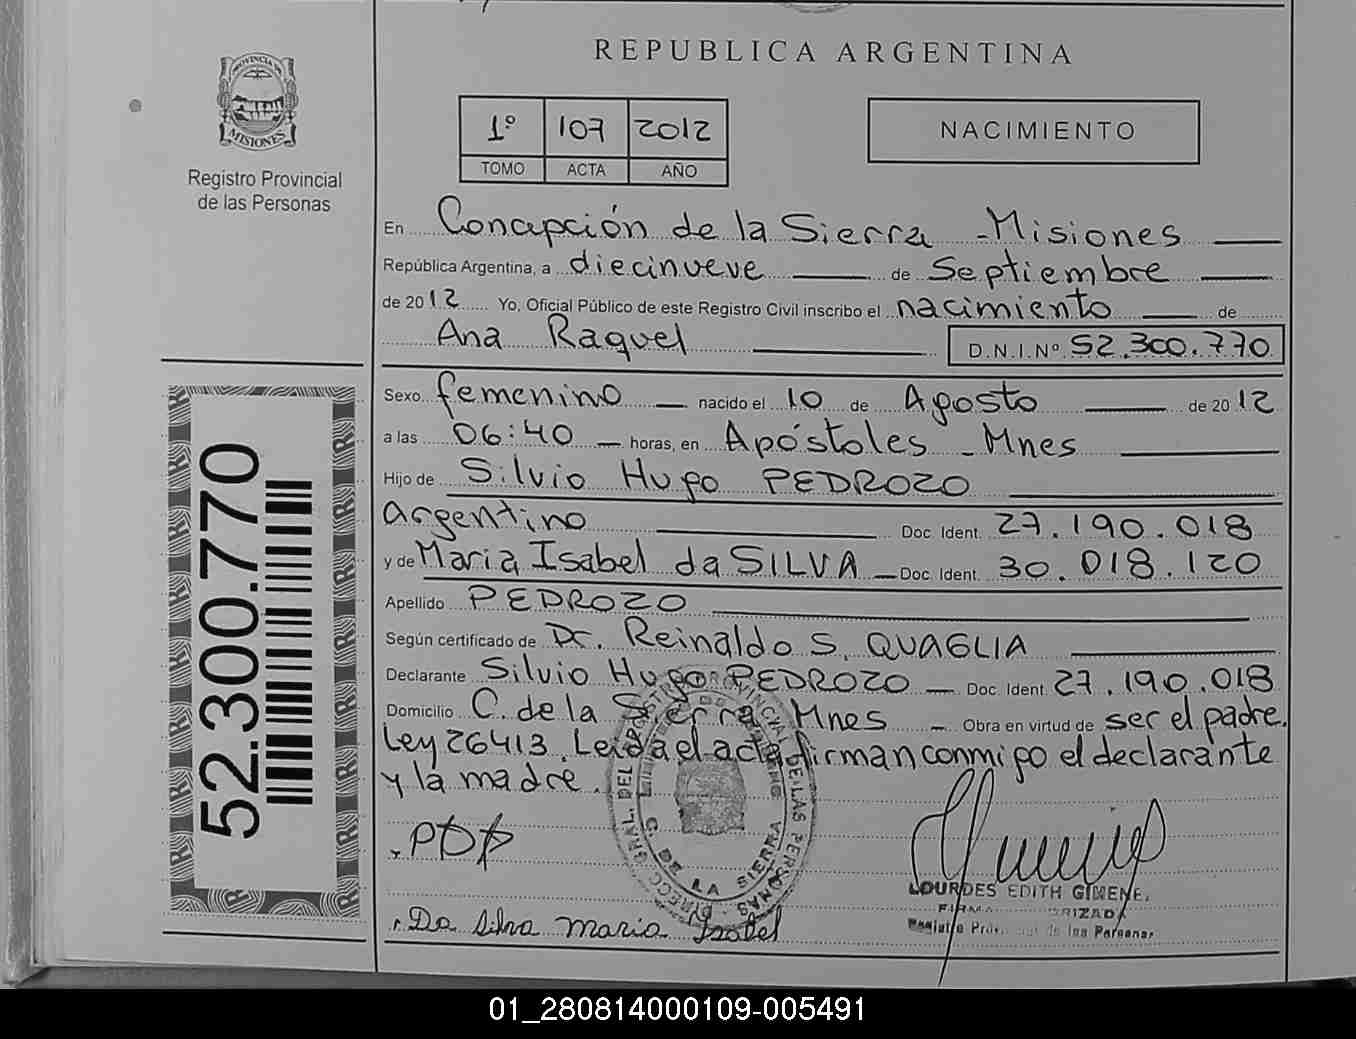 REPUBLICA ARGENTINA
PROVINCIA DE
MISIONES
Registro Provincial
de las Personas
1º 107 2012
TOMO ACTA AÑO
NACIMIENTO
En Concepción de la Sierra - Misiones
República Argentina, a diecinueve de Septiembre
de 2012 Yo, Oficial Público de este Registro Civil inscribo el nacimiento de
Ana Raquel D.N.I.Nº 52.300.770
Sexo femenino nacido el 10 de Agosto de 2012
a las 06:40 horas, en Apóstoles - Mnes
Hijo de Silvio Hugo PEDROZO
Argentino Doc. Ident. 27.190.018
y de Maria Isabel da SILVA Doc. Ident. 30.018.120
Apellido PEDROZO
Según certificado de Dr. Reinaldo S. QUAGLIA
Declarante Silvio Hugo PEDROZO Doc. Ident. 27.190.018
Domicilio C. de la Sierra Mnes Obra en virtud de ser el padre.
Ley 26413. Leida el acta firman conmigo el declarante
y la madre.
52.300.770
DIRECC. GRAL. DEL REGISTRO PROVINCIAL DE LAS PERSONAS
C. DE LA SIERRA
LOURDES EDITH GIMENE
Da Silva Maria Isabel
01_280814000109-005491